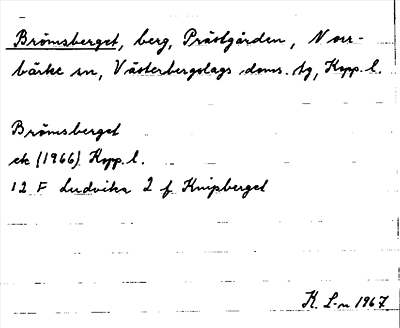 Brömsberget, berg, Prästgården, Norr-
bärke sn, Västerbergslags doms. tg, Kopp. l.
Brömsberget
ek (1966) Kopp. l.
12 F Ludvika 2 f Knipberget
K. L-n 1967